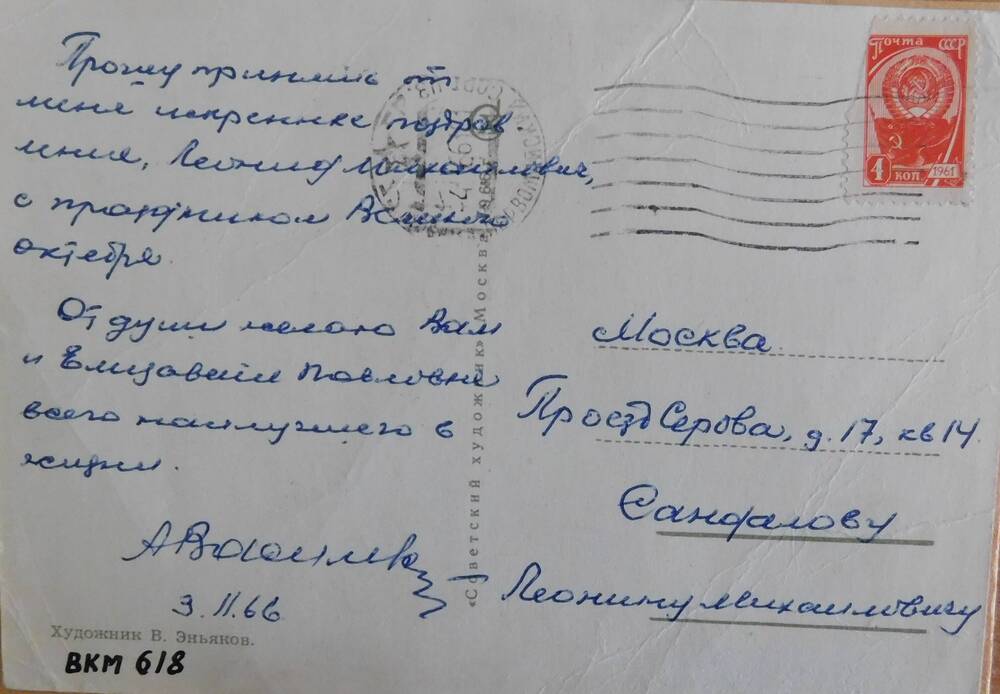 Прошу принять от
меня искренние поздрав-
ления, Леонид Михайлович,
с праздником Великого
Октября.
От души желаю Вам
и Елизавете Павловне
всего наилучшего в
жизни.
АВасилев
3.11.66
Художник В. Эньяков.
ВКМ 618
«Советский художник» Москва 1966
Почта СССР
4 коп. 1961
Москва
Проезд Серова, д. 17, кв 14
Сандалову
Леониду Михайловичу